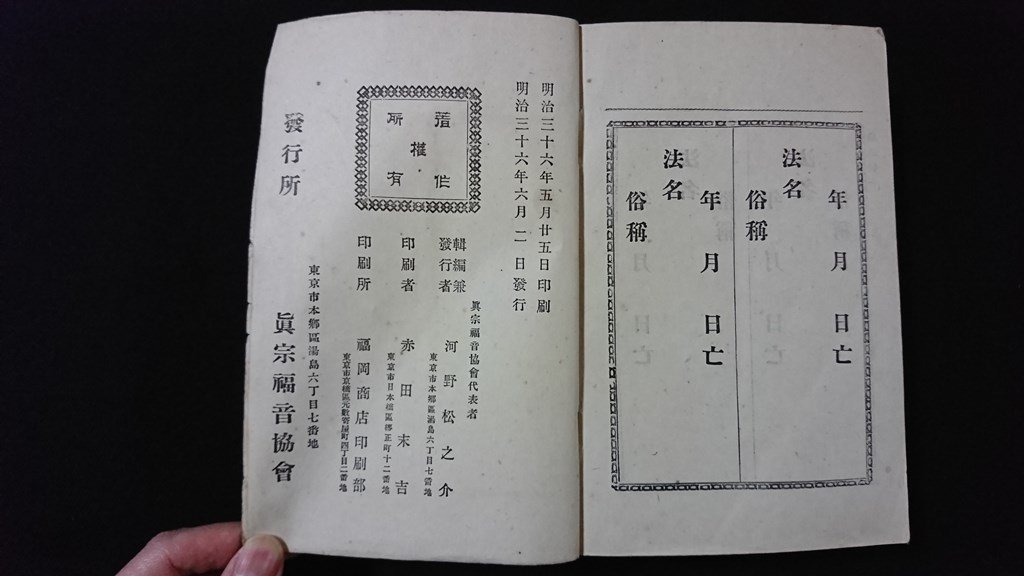 年 月 日亡
法名
俗稱
年 月 日亡
法名
俗稱
明治三十六年五月廿五日印刷
明治三十六年六月二日發行
著作
權
所有
眞宗福音協會代表者
輯編兼
發行者
河野松之介
東京市本鄕區湯島六丁目七番地
印刷者
赤田末吉
東京市日本橋區 正町十二番地
印刷所
福岡商店印刷部
東京市京橋區元數寄屋町四丁目二番地
東京市本鄕區湯島六丁目七番地
發行所
眞宗福音協會